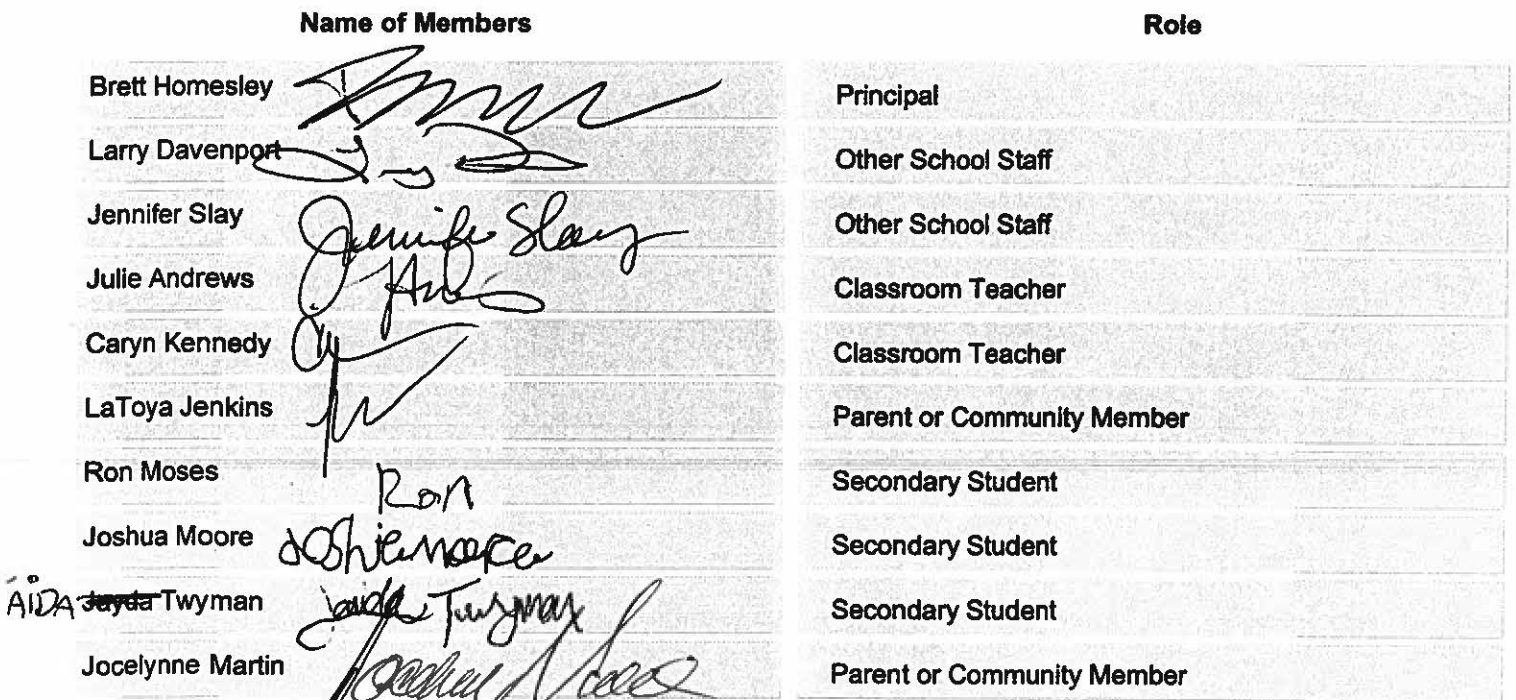 Name of Members Role
Brett Homesley Principal
Larry Davenport Other School Staff
Jennifer Slay Jennifer Slay Other School Staff
Julie Andrews Classroom Teacher
Caryn Kennedy Classroom Teacher
LaToya Jenkins Parent or Community Member
Ron Moses Ron Secondary Student
Joshua Moore Secondary Student
AIDA Jayda Twyman Twyman Secondary Student
Jocelynne Martin Parent or Community Member